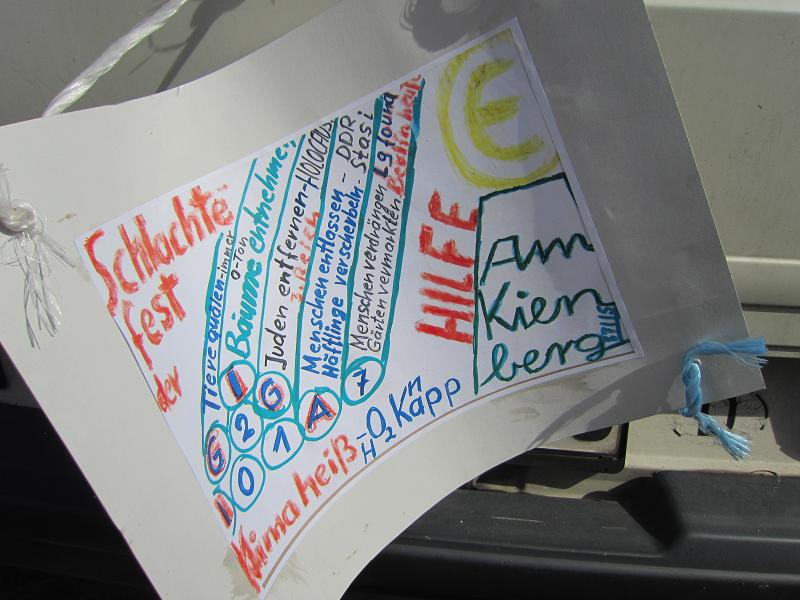 Schlachte
fest
der
Tiere quälen-immer
O-Ton
Bäume entnehmen
Juden entfernen-HOLOCAUS
3. REICH
Menschen entlassen - DDR
Häftlinge verscherbeln - Stasi
Menschen verdrängen Lg found
Gärten vermarkten Berlin heute
I G A
G 2 0 1 7
Klima heiß-H2O Knapp
HILFE
E
Am
Kien
berg